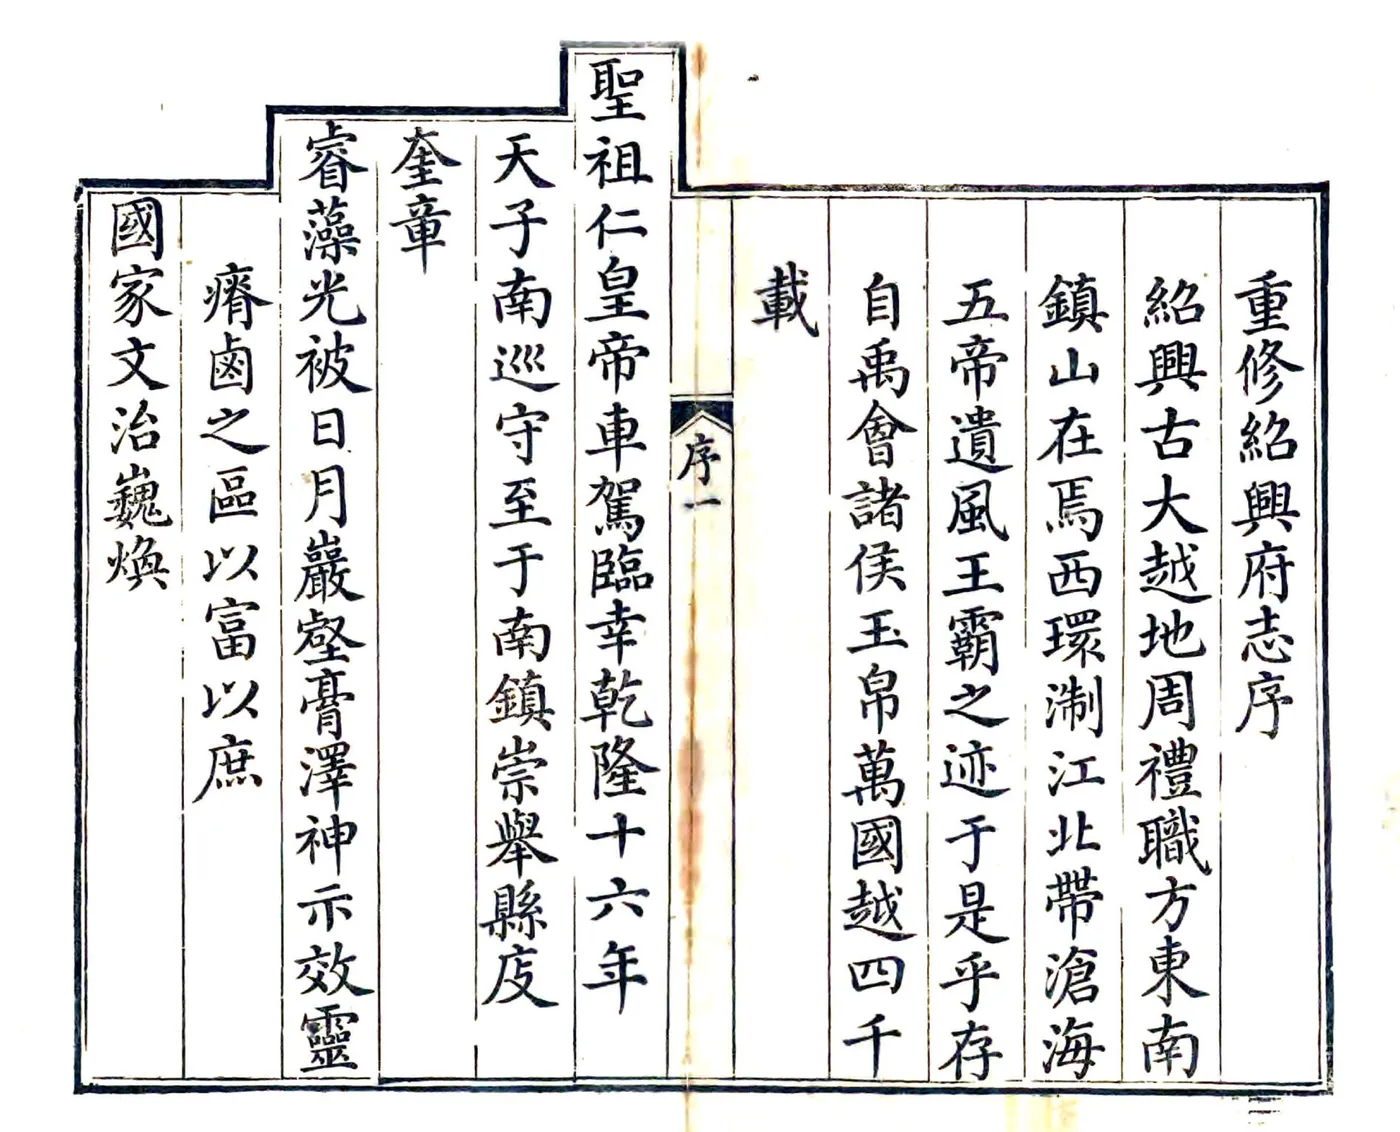 重修紹興府志序
紹興古大越地周禮職方東南
鎮山在焉西環淛江北帶滄海
五帝遺風王霸之迹于是乎存
自禹會諸侯玉帛萬國越四千
載
序一
聖祖仁皇帝車駕臨幸乾隆十六年
天子南巡守至于南鎮崇舉縣庋
奎章
睿藻光被日月巖壑膏澤神示效靈
瘠鹵之區以富以庶
國家文治巍煥